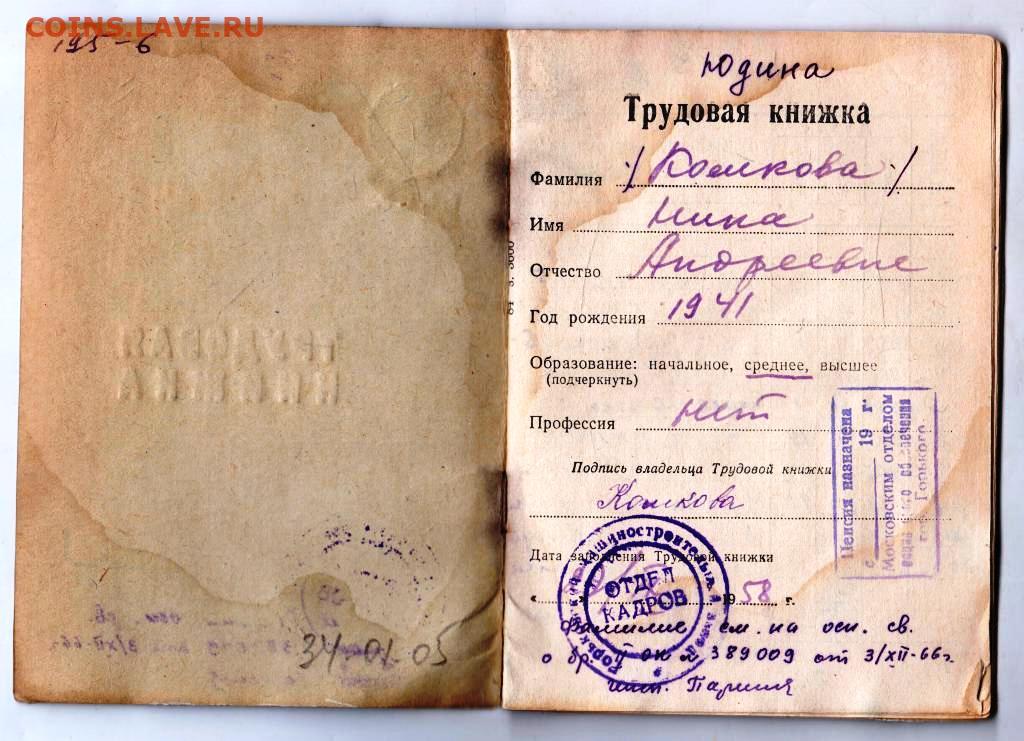 COINS.LAVE.RU
195-6
ТРУДОВАЯ
КНИЖКА
34-01 05
Юдина
Трудовая книжка
Фамилия /Комкова/
Имя Нина
Отчество Андреевне
Год рождения 1941
Образование: начальное, среднее, высшее
(подчеркнуть)
Профессия нет
Подпись владельца Трудовой книжки
Комкова
Дата заполнения Трудовой книжки
1958 г.
Фамилие см. на осн. св.
о бр. № 389009 от 3/XII-66г.
ОТДЕЛ
КАДРОВ
Пенсия назначена
с 19 г.
Московским отделом
социального обеспечения
гор. Горького